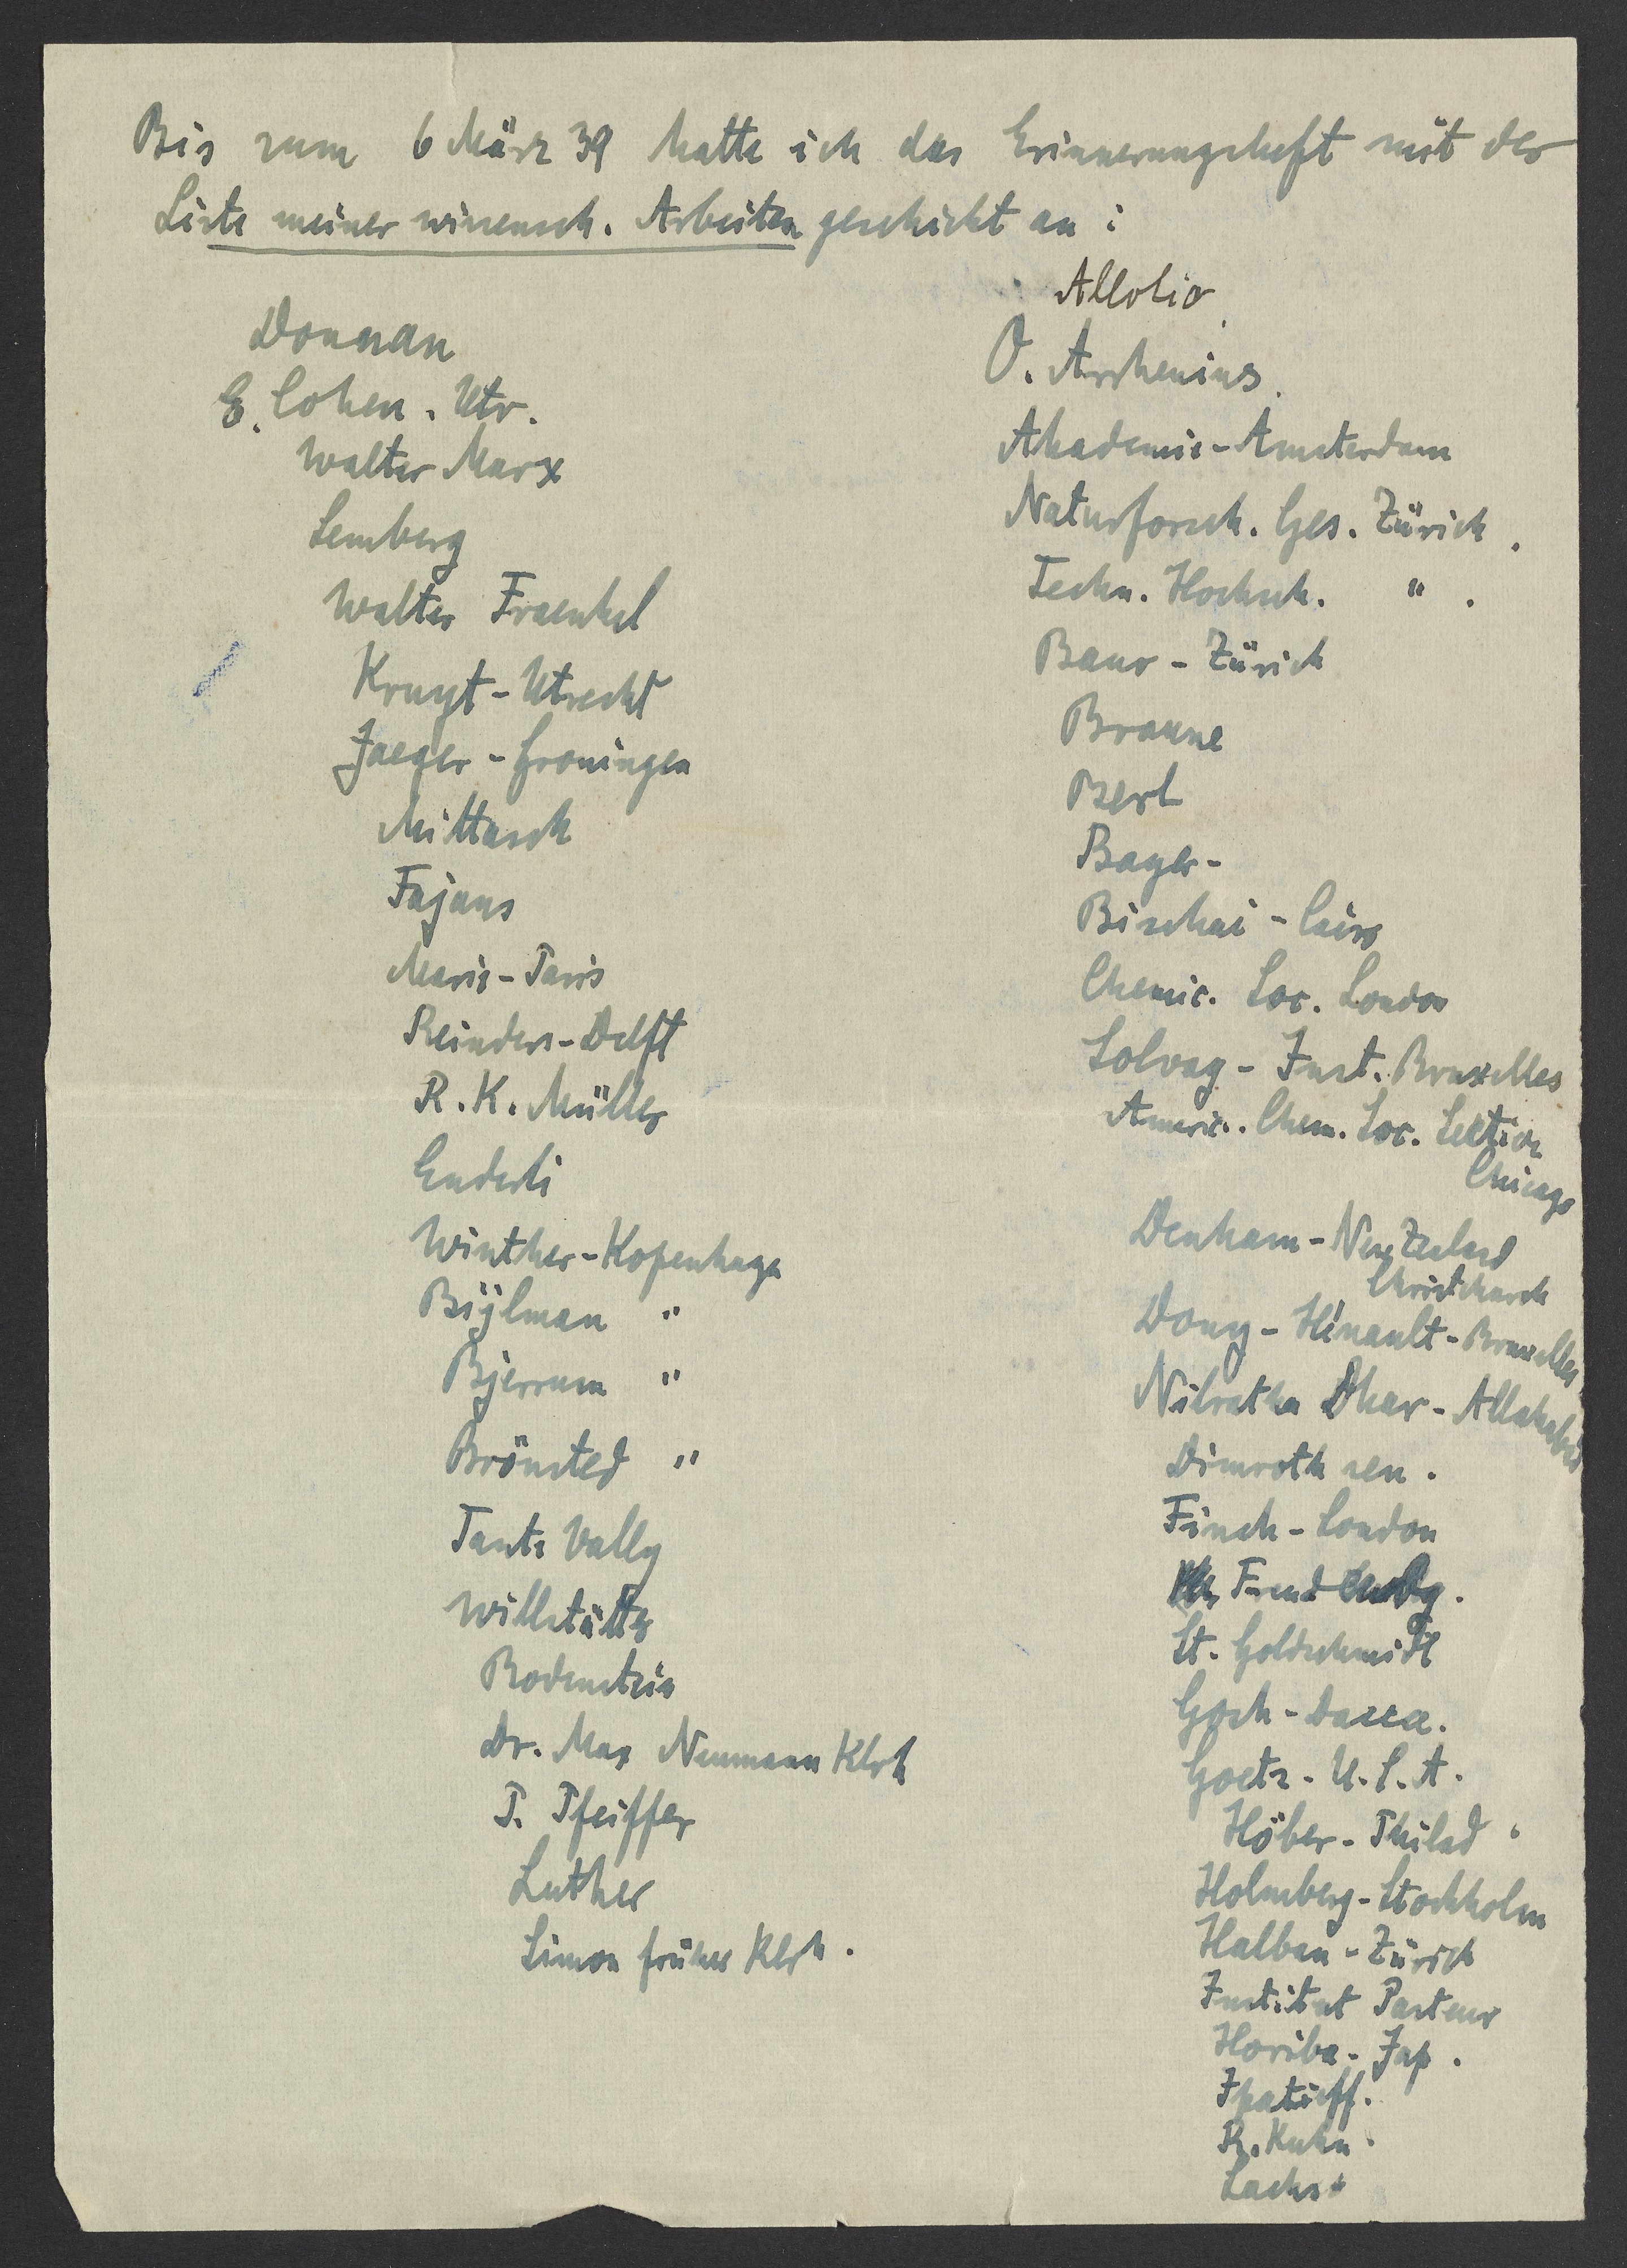 Bis zum 6 März 39 hatte ich das Erinnerungsheft mit der
Liste meiner wissensch. Arbeiten geschickt an :
Donnan
E. Cohen. Utr.
Walter Marx
Lemberg
Walter Fraenkel
Kruyt - Utrecht
Jaeger - Groningen
Mittasch
Fajans
Marie - Paris
Reinders - Delft
R. K. Müller
Enderli
Winther - Kopenhagen
Biylman "
Bjerrum "
Brönsted "
Tante Vally
Willstätter
Bodenstein
Dr. Max Neumann Klrh
P. Pfeiffer
Luther
Simon früher Klrh.
Allolio
O. Arrhenius.
Akademie - Amsterdam
Naturforsch. Ges. Zürich.
Techn. Hochsch. " .
Baur - Zürich
Braune
Berl
Bayer -
Bischai - Cairo
Chemic. Soc. London
Solvay - Inst. Bruxelles
Americ. Chem. Soc. Sektion
Chicago
Denham - New Zealand
Christchurch
Dony - Hénault - Bruxelles
Nilratha Dhar - Allahabad
Dimroth sen.
Finch - London
St. Goldschmidt
Gosh - Dacca.
Goetz - U.S.A.
Höber - Philad.
Holmberg - Stockholm
Halban - Zürich
Institut Pasteur
Horiba - Jap.
Ipatieff.
R. Kuhn.
Lachs.